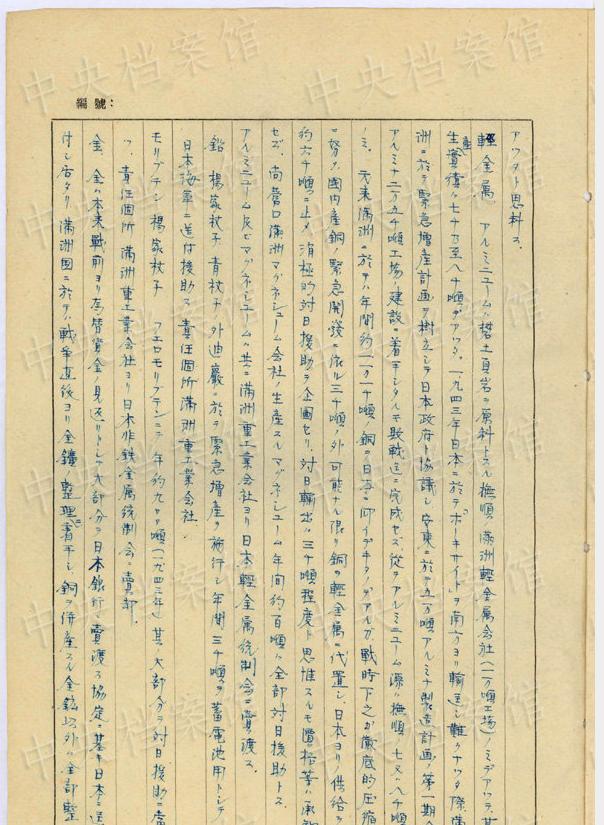 編號:
アツタト思料ス.
輕金属 アルミニューム 礬土頁岩ヲ原料トスル撫順 滿洲輕金属会社(一万噸工場)ノミデアツテ、其
生産實績ハ七千乃至八千噸デアツタ. 一九四三年日本ニ於テ「ボーキサイド」ヲ南方ヨリ輸送シ難クナツタ際滿
洲ニ於テ緊急増産計画ヲ樹立シテ日本政府ト協議シ安東ニ於テ 万噸ノアルミナ製造計画 第一期
アルミナ二万五千噸工場ノ建設ニ着手シタルモ敗戦迄ニ完成セズ従テアルミニューム源ハ撫順ノ七又ハ八千噸
ノミ. 元来滿洲ニ於テハ年間約一万一千噸ノ銅ハ日本ニ仰イデキタノデアルガ戦時下之ガ徹底的圧縮
ニ努メ國内産銅ノ緊急開發ニ依ル三千噸ノ外可能ナル限リ銅ヲ輕金属ニ代置シ、日本ヨリノ供給ヲ
約六千噸ニ止メ 消極的対日援助ヲ企圖セリ. 対日輸出ハ三千噸程度ト思惟スルモ價格等ハ承知
セズ. 尚営口滿洲マグネシューム会社ノ生産スルマグネシューム年间約百噸ハ全部対日援助トス.
アルミニューム及ビマグネシュームハ共ニ滿洲重工業会社ヨリ日本輕金属統制会ニ賣渡ス.
鉛 楊家杖子 青杖子ノ外 ニ於テ緊急増産ヲ施行シ年間三千噸ヲ蓄電池用トシテ
日本海軍ニ送付援助ス 責任個所滿洲重工業会社.
モリブデン 楊家杖子 フエロモリブデンニテ年約九 噸(一九四三年)其ノ大部分ヲ対日援助ニ當
ツ. 責任個所 滿洲重工業会社ヨリ日本非鉄金属統制会ニ賣却.
金. 金ハ本来戰前ヨリ為替資金ノ見返リトシテ大部分ヲ日本銀行ニ賣渡ス協定ニ基キ日本ニ送
付シ居タリ 滿洲国ニ於テハ戰争直後ヨリ金鑛ノ整理ニ着手シ、銅ヲ併産スル金鉱以外ハ全部整
中央档案馆